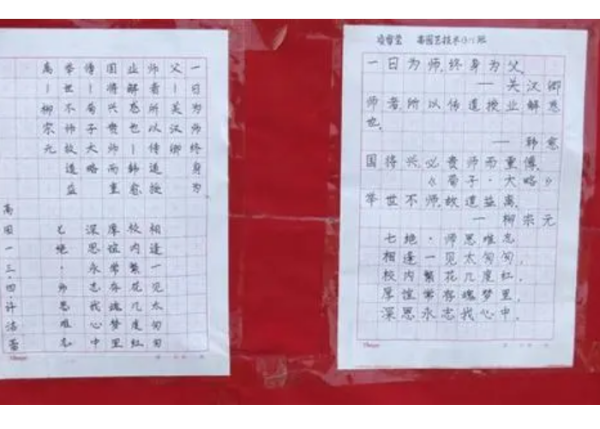 一日为师终身为
父—关汉卿
师者所以传道授
业解惑也—韩愈
国将兴贵师而重
傅—荀子大略
举世不师故道益
离—柳宗元
七绝·师恩难忘
相逢一见太匆匆
校内繁花几度红
厚谊常存魂梦里
深恩永志我心中
高园一三·四·许洁蕾
园艺技术 班
一日为师,终身为父。
— 关汉卿
师者,所以传道授业解惑
也。
— 韩愈
国将兴,必贵师而重傅。
《荀子·大略》
举世不师,故道益离。
— 柳宗元
七绝·师恩难忘
相逢一见太匆匆,
校内繁花几度红,
厚谊常存魂梦里,
深恩永志我心中。